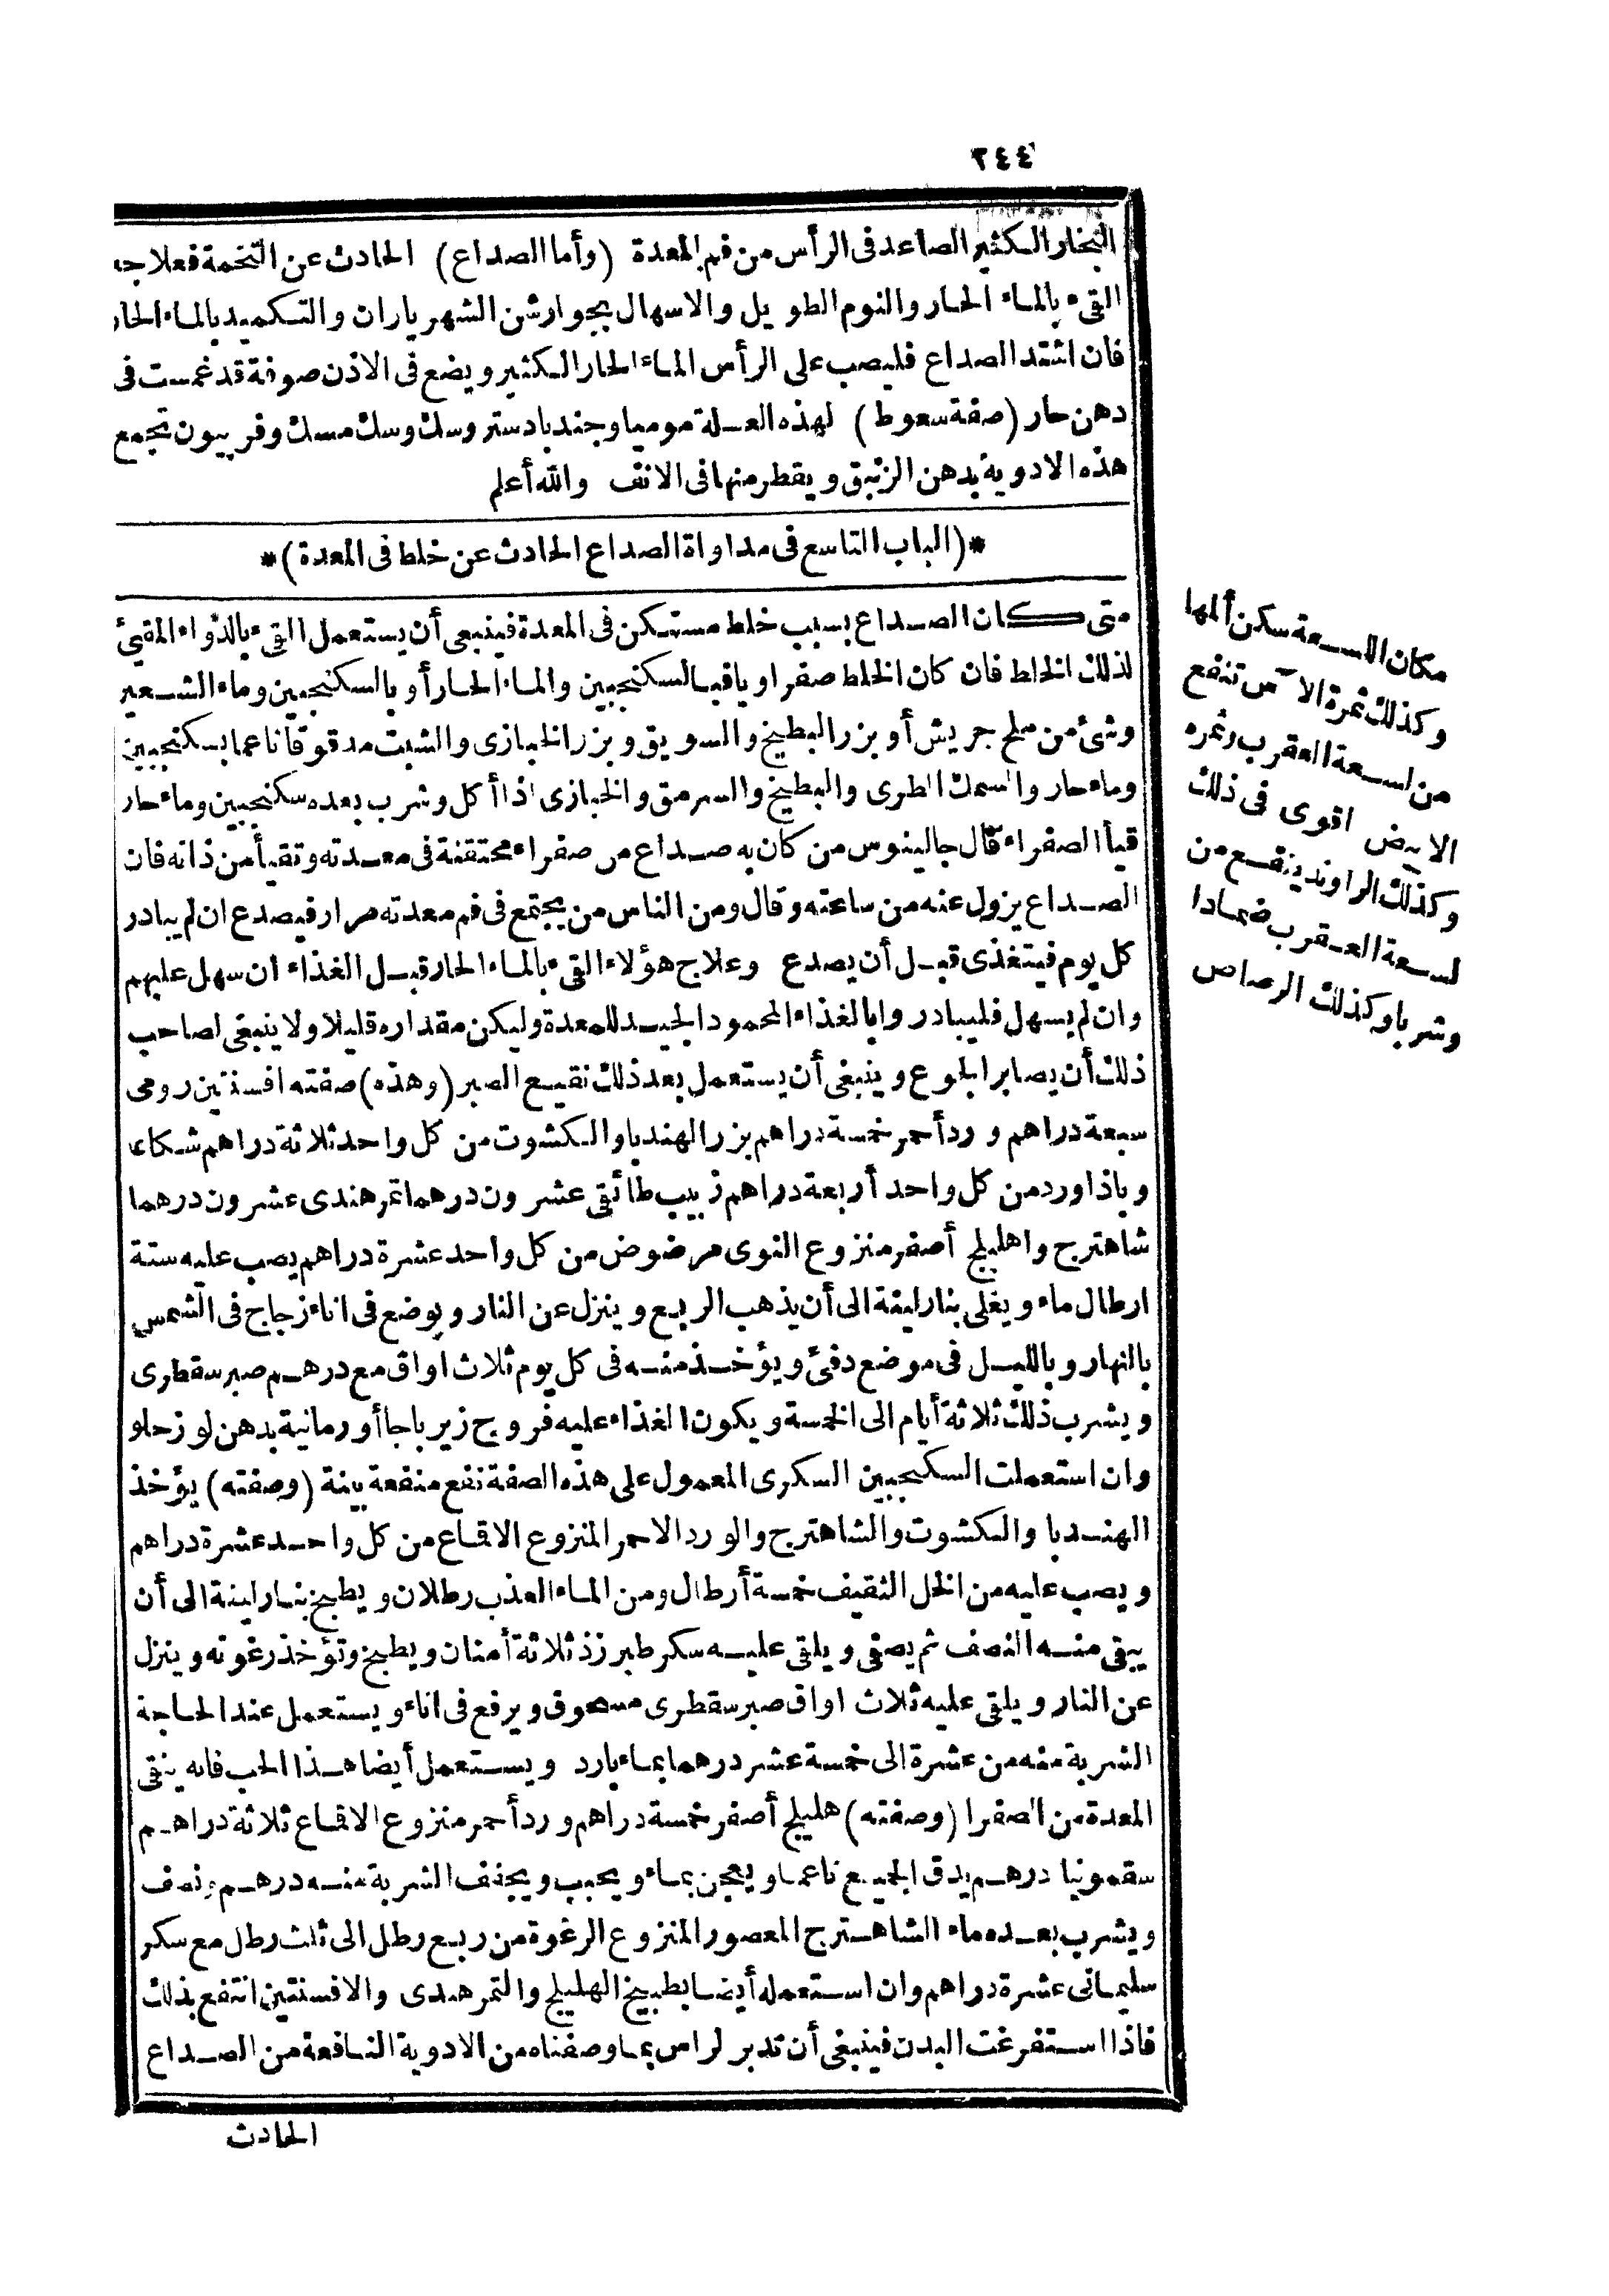 ٢٤٤
البخار الكثير الصاعد فى الرأس من فم المعدة (وأما الصداع) الحادث عن التخمة فعلاجه
القىء بالماء الحار والنوم الطويل والاسهال بجوارشن الشهرياران والتكميد بالماء الحار
فان اشتد الصداع فليصب على الرأس الماء الحار الكثير ويضع فى الاذن صوفة قد غمست فى
دهن حار (صفة سعوط) لهذه العلة موميا وجندبادستر وسك وسك مسك وفربيون تجمع
هذه الادوية بدهن الزنبق ويقطر منها فى الانف والله أعلم
*(الباب التاسع فى مداواة الصداع الحادث عن خلط فى المعدة)*
متى كان الصداع بسبب خلط مستكن فى المعدة فينبغى أن يستعمل القىء بالدواء المقيئ
لذلك الخلط فان كان الخلط صفراويا قيا السكنجبين والماء الحار أو بالسكنجبين وماء الشعير
وشئ من ملح جريش أو بزر البطيخ والسويق وبزر الخبازى والشبت مدقوقا ناعما بسكنجبين
وماء حار والسمك الطرى والبطيخ والسرمق والخبازى اذا أكل وشرب بعده سكنجبين وماء حار
قيأ الصفراء قال جالينوس من كان به صداع من صفراء محتقنة فى معدته وتقيأ من ذاته فان
الصداع يزول عنه من ساعته وقال ومن الناس من يجتمع فى فم معدته مرار فيصدع ان لم يبادر
كل يوم فيتغذى قبل أن يصدع وعلاج هؤلاء القىء بالماء الحار قبل الغذاء ان سهل عليهم
وان لم يسهل فليبادروا بالغذاء المحمود الجيد للمعدة وليكن مقداره قليلا ولا ينبغى لصاحب
ذلك أن يصابر الجوع وينبغى أن يستعمل بعد ذلك نقيع الصبر (وهذه) صفته افسنتين رومى
سبعة دراهم ورد أحمر خمسة دراهم بزر الهندبا والكشوت من كل واحد ثلاثة دراهم شكاعا
وباذاورد من كل واحد أربعة دراهم زبيب طائفى عشرون درهما تمر هندى عشرون درهما
شاهترج واهليلج أصفر منزوع النوى مرضوض من كل واحد عشرة دراهم يصب عليه ستة
ارطال ماء ويغلى بنار لينة الى أن يذهب الربع وينزل عن النار ويوضع فى اناء زجاج فى الشمس
بالنهار وبالليل فى موضع دفئ ويؤخذ منه فى كل يوم ثلاث اواق مع درهم صبر سقطرى
ويشرب ذلك ثلاثة أيام الى الخمسة ويكون الغذاء عليه فروج زيرباجا أو رمانية بدهن لوز حلو
وان استعملت السكنجبين السكرى المعمول على هذه الصفة نفع منفعة بينة (وصفته) يؤخذ
الهندبا والكشوت والشاهترج والورد الاحمر المنزوع الاقماع من كل واحد عشرة دراهم
ويصب عليه من الخل الثقيف خمسة أرطال ومن الماء العذب رطلان ويطبخ بنار لينة الى أن
يبقى منه النصف ثم يصفى ويلقى عليه سكر طبرزذ ثلاثة أمنان ويطبخ وتؤخذ رغوته وينزل
عن النار ويلقى عليه ثلاث اواق صبر سقطرى مسحوق ويرفع فى اناء ويستعمل عند الحاجة
الشربة منه من عشرة الى خمسة عشر درهما بماء بارد ويستعمل أيضا هذا الحب فانه ينقى
المعدة من الصفرا (وصفته) هليلج أصفر خمسة دراهم ورد أحمر منزوع الاقماع ثلاثة دراهم
سقمونيا درهم يدق الجميع ناعما ويعجن بماء ويحبب ويجفف الشربة منه درهم ونصف
ويشرب بعده ماء الشاهترج المعصور المنزوع الرغوة من ربع رطل الى ثلث رطل مع سكر
سليمانى عشرة دراهم وان استعمله أيضا بطبيخ الهليلج والتمر هندى والافسنتين انتفع بذلك
فاذا استفرغت البدن فينبغى أن تدبر الراس بما وصفناه من الادوية النافعة من الصداع
الحادث
مكان اللسعة سكن ألمها
وكذلك ثمرة الآس تنفع
من لسعة العقرب وثمره
الابيض اقوى فى ذلك
وكذلك الراوند ينفع من
لسعة العقرب ضمادا
وشربا وكذلك الرصاص